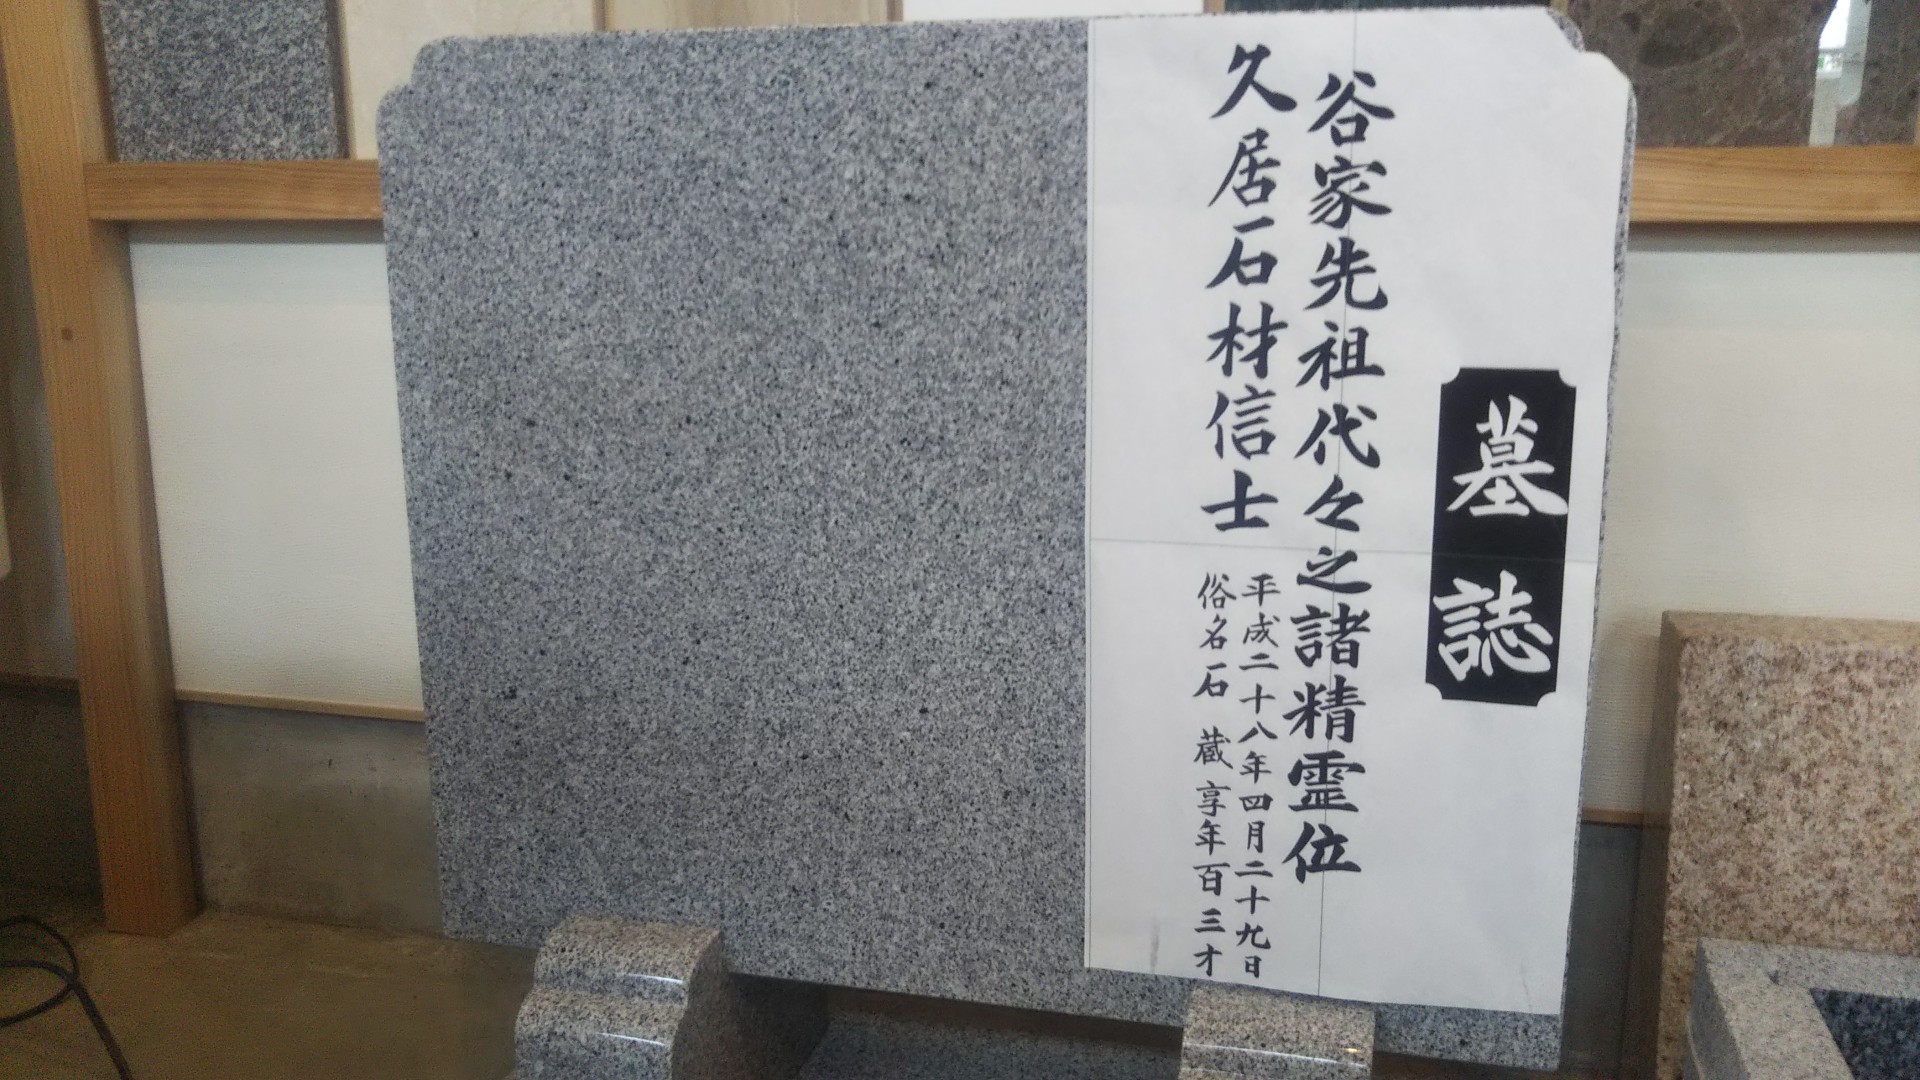 墓誌
谷家先祖代々之諸精霊位
久居石材信士
平成二十八年四月二十九日
俗名石 蔵 享年百三才